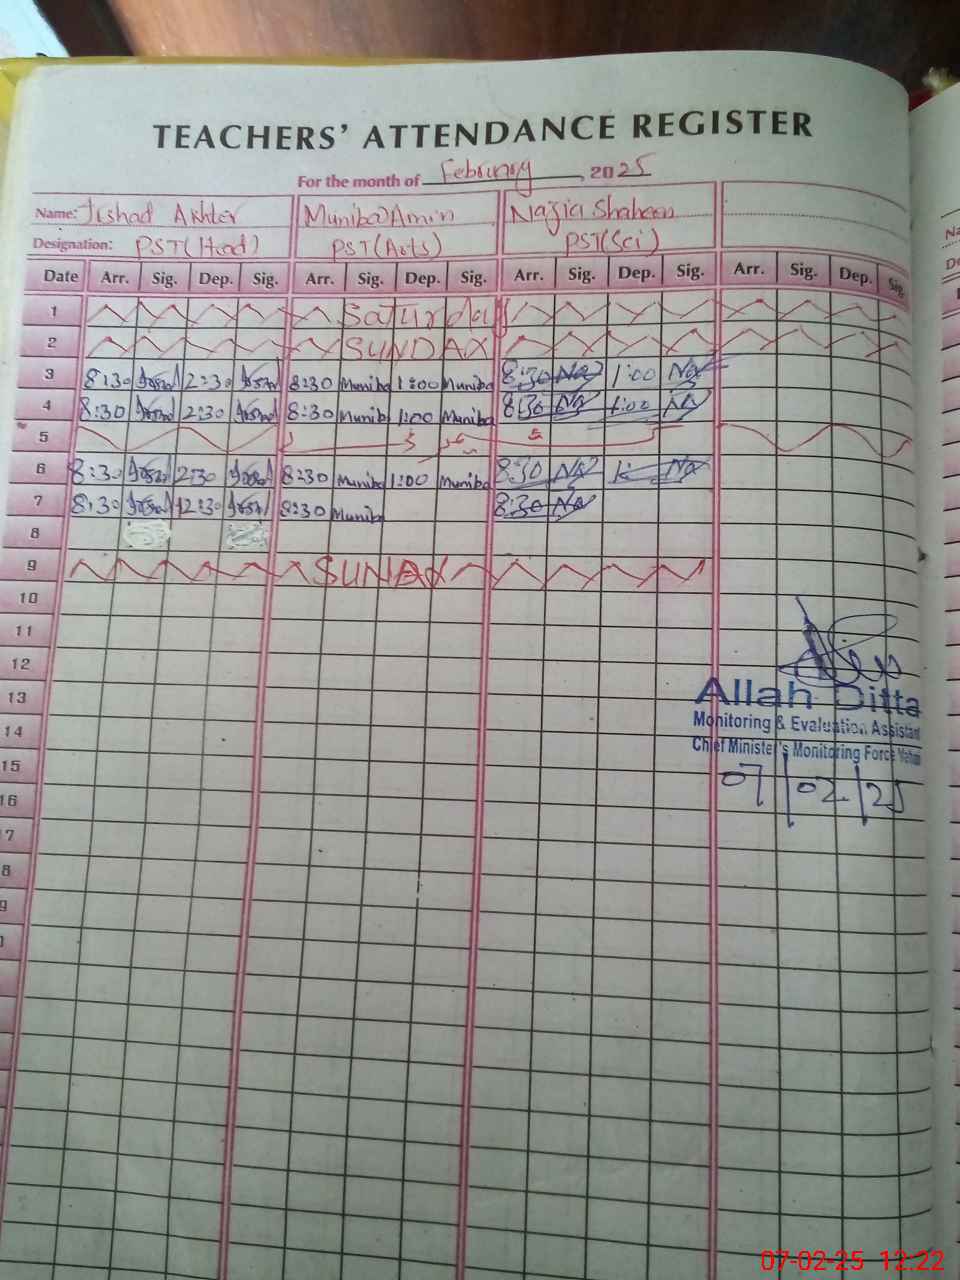 TEACHERS' ATTENDANCE REGISTER
For the month of February, 2025
Name: Irshad Akhter Muniba Amin Nazia Shaheen
Designation: PST(Head) PST(Arts) PST(Sci)
Date Arr. Sig. Dep. Sig. Arr. Sig. Dep. Sig. Arr. Sig. Dep. Sig. Arr. Sig. Dep. Sig.
1 Saturday
2 SUNDAY
3 8:30 Irshad 2:30 Irshad 8:30 Muniba 1:00 Muniba 8:30 Na 1:00 Na
4 8:30 Irshad 2:30 Irshad 8:30 Muniba 1:00 Muniba 8:30 Na 1:00 Na
5
6 8:30 Irshad 2:30 Irshad 8:30 Muniba 1:00 Muniba 8:30 Na 1: Na
7 8:30 Irshad 12:30 Irshad 8:30 Muniba 8:30 Na
8
9 SUNDAY
10
11
12
13
14
15
16
7
8
9
Allah Ditta
Monitoring & Evaluation Assistant
Chief Minister's Monitoring Force
07/02/25
07-02-25 12:22